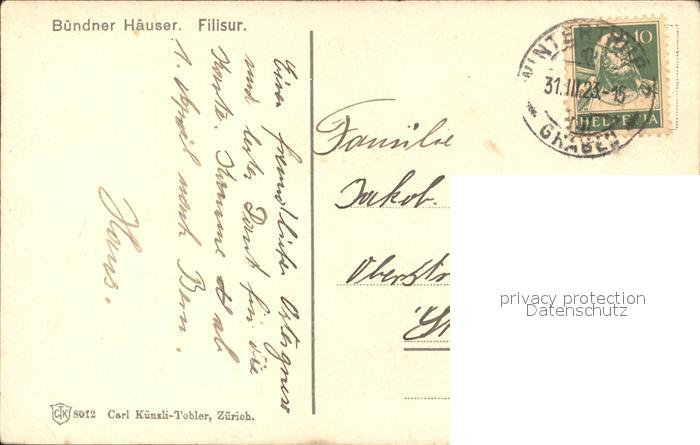 Bündner Häuser. Filisur.
Einen freundlichen Ostergruss
und besten Dank für die
Karte. Komme ab
1. April nach Bern.
Hans.
Familie
Jakob.
Oberstr
10
WINTERTHUR
31.III.23.-16
GRABEN
HELVETIA
privacy protection
Datenschutz
CTK 8012 Carl Künzli-Tobler, Zürich.